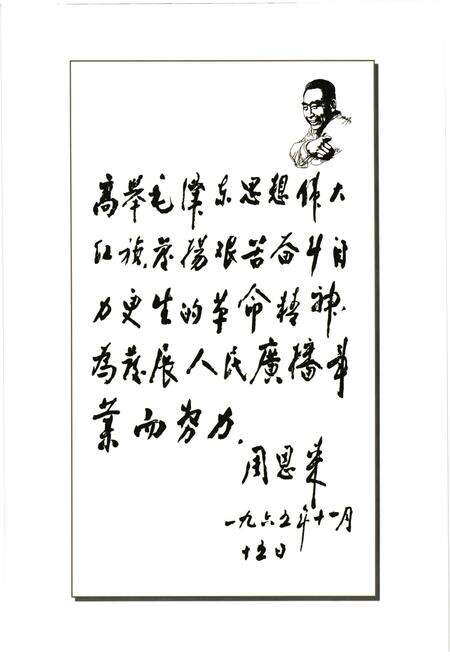 高舉毛澤东思想偉大
红旗,發揚艰苦奋斗自
力更生的革命精神,
為發展人民廣播事
業而努力。
周恩来
一九六五年十一月
十五日